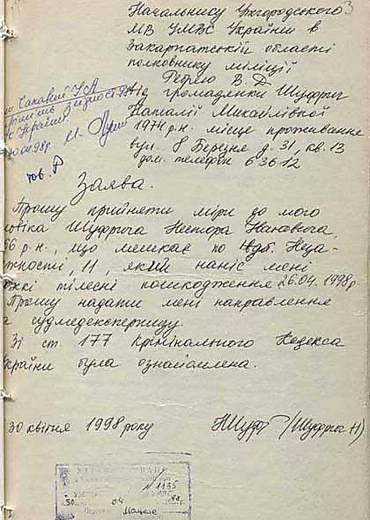 3
Начальнику Ужгородського
МВ УМВС України в
Закарпатській області
полковнику міліції
В.
від громадянки Шуфрич
Наталії Михайлівної
1974 р.н. місце проживання
вул. 8 Березня д. 31, кв. 13
дом. телефон 63612
України
Заява.
Прошу прийняти міри до мого
ловіка Шуфрича Нестора Івановича,
66 р.н., що мешкає по наб. Неза-
жності, 11, який наніс мені
жкі тілесні пошкодження 26.04.1998р
Прошу надати мені направлення
а судмедекспертизу.
Зі ст. 177 Крімінального Кодекса
країни була ознайомлена.
30 квітня 1998 року НШуф (Шуфрич Н)
1135
30 04 98